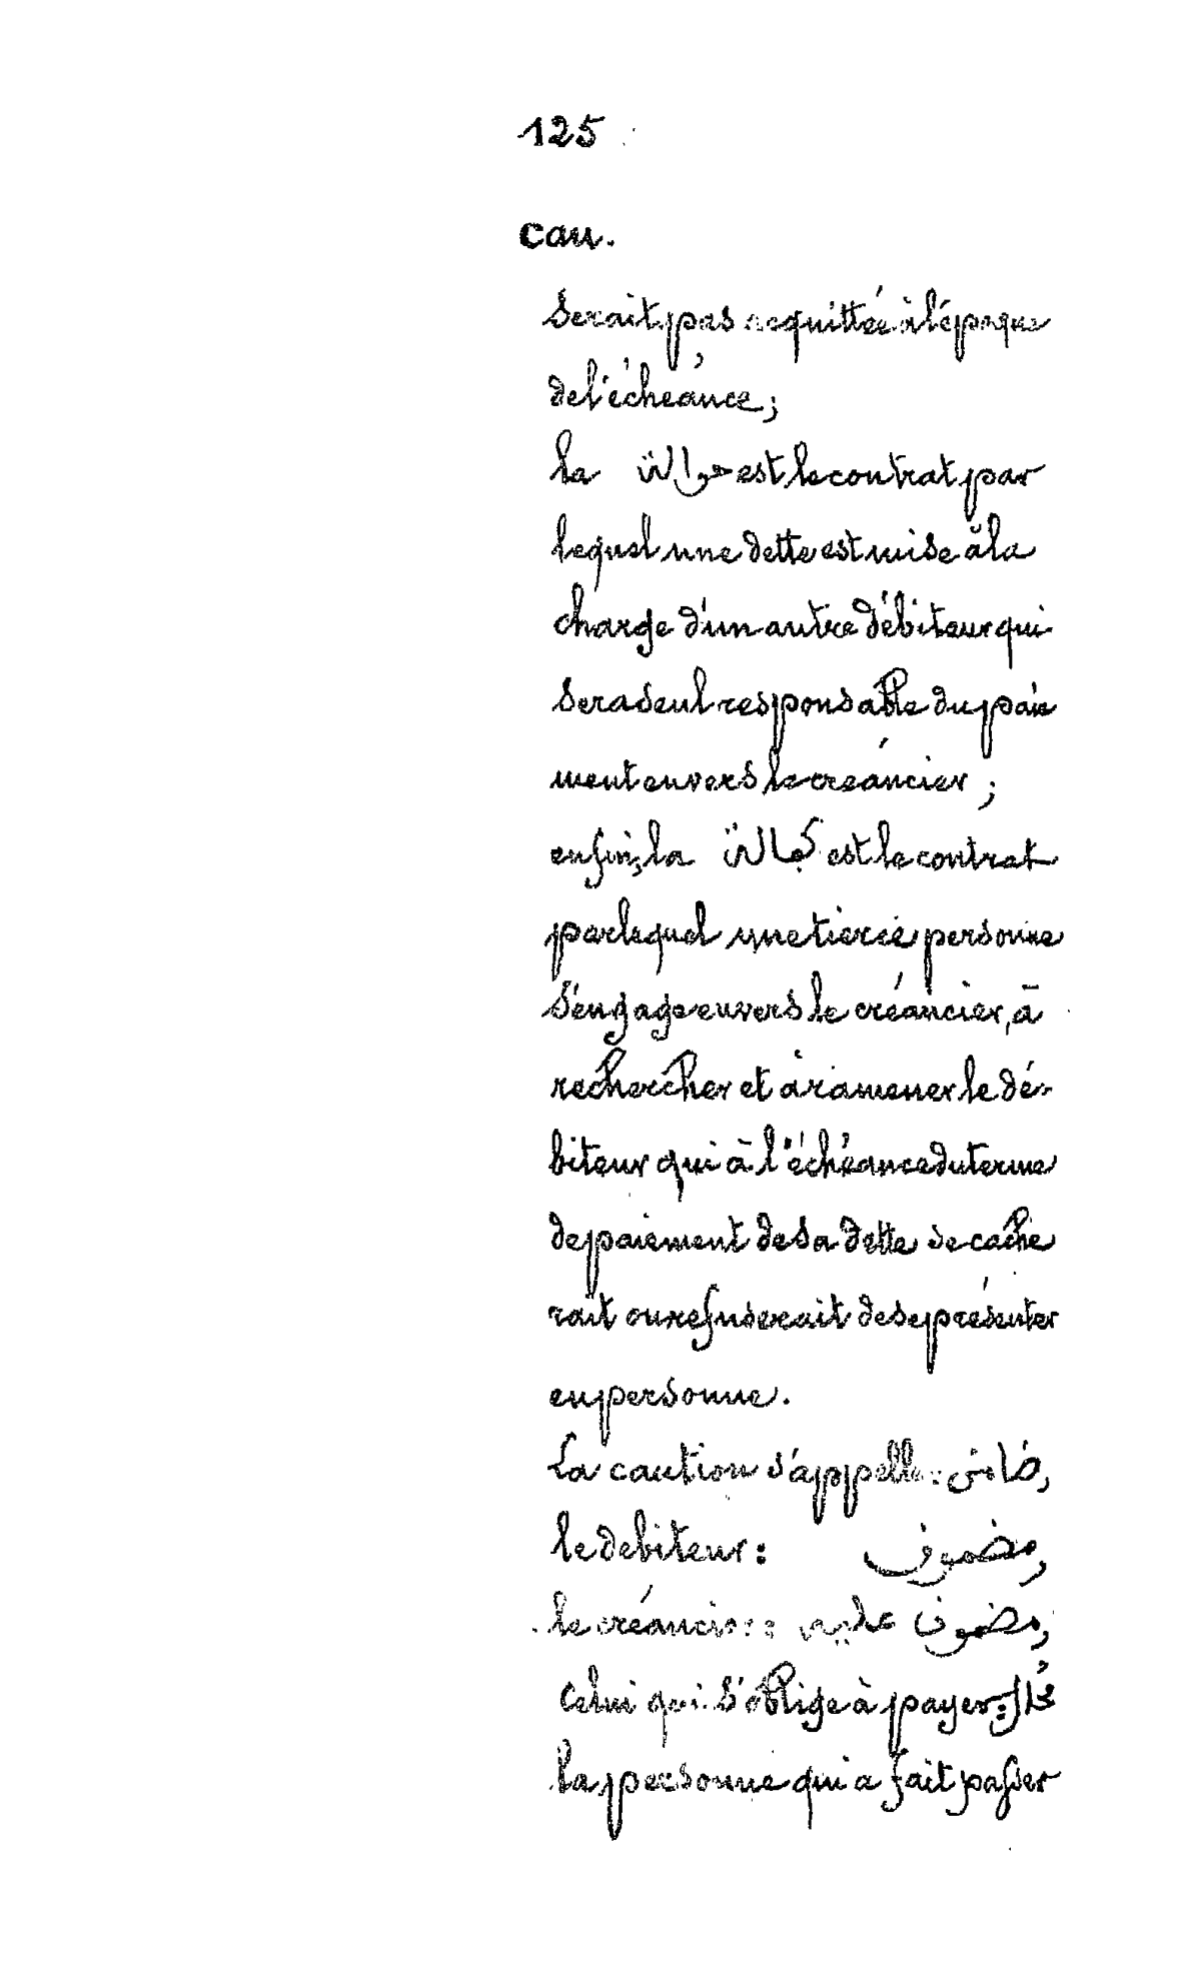 125
cau.
serait pas acquittée à l'époque
de l'échéance;
la حوالة est le contrat par
lequel une dette est mise à la
charge d'un autre débiteur qui
sera seul responsable du paie
ment envers le créancier;
enfin, la كفالة est le contrat
par lequel une tierce personne
s'engage envers le créancier, à
rechercher et à ramener le dé-
biteur qui à l'échéance du terme
de paiement de sa dette se cache
rait ou refuserait de se présenter
en personne.
La caution s'appelle: ضامن,
le debiteur: مضمون,
le créancier: مضمون عليه,
celui qui s'oblige à payer: مُحال
la personne qui a fait passer